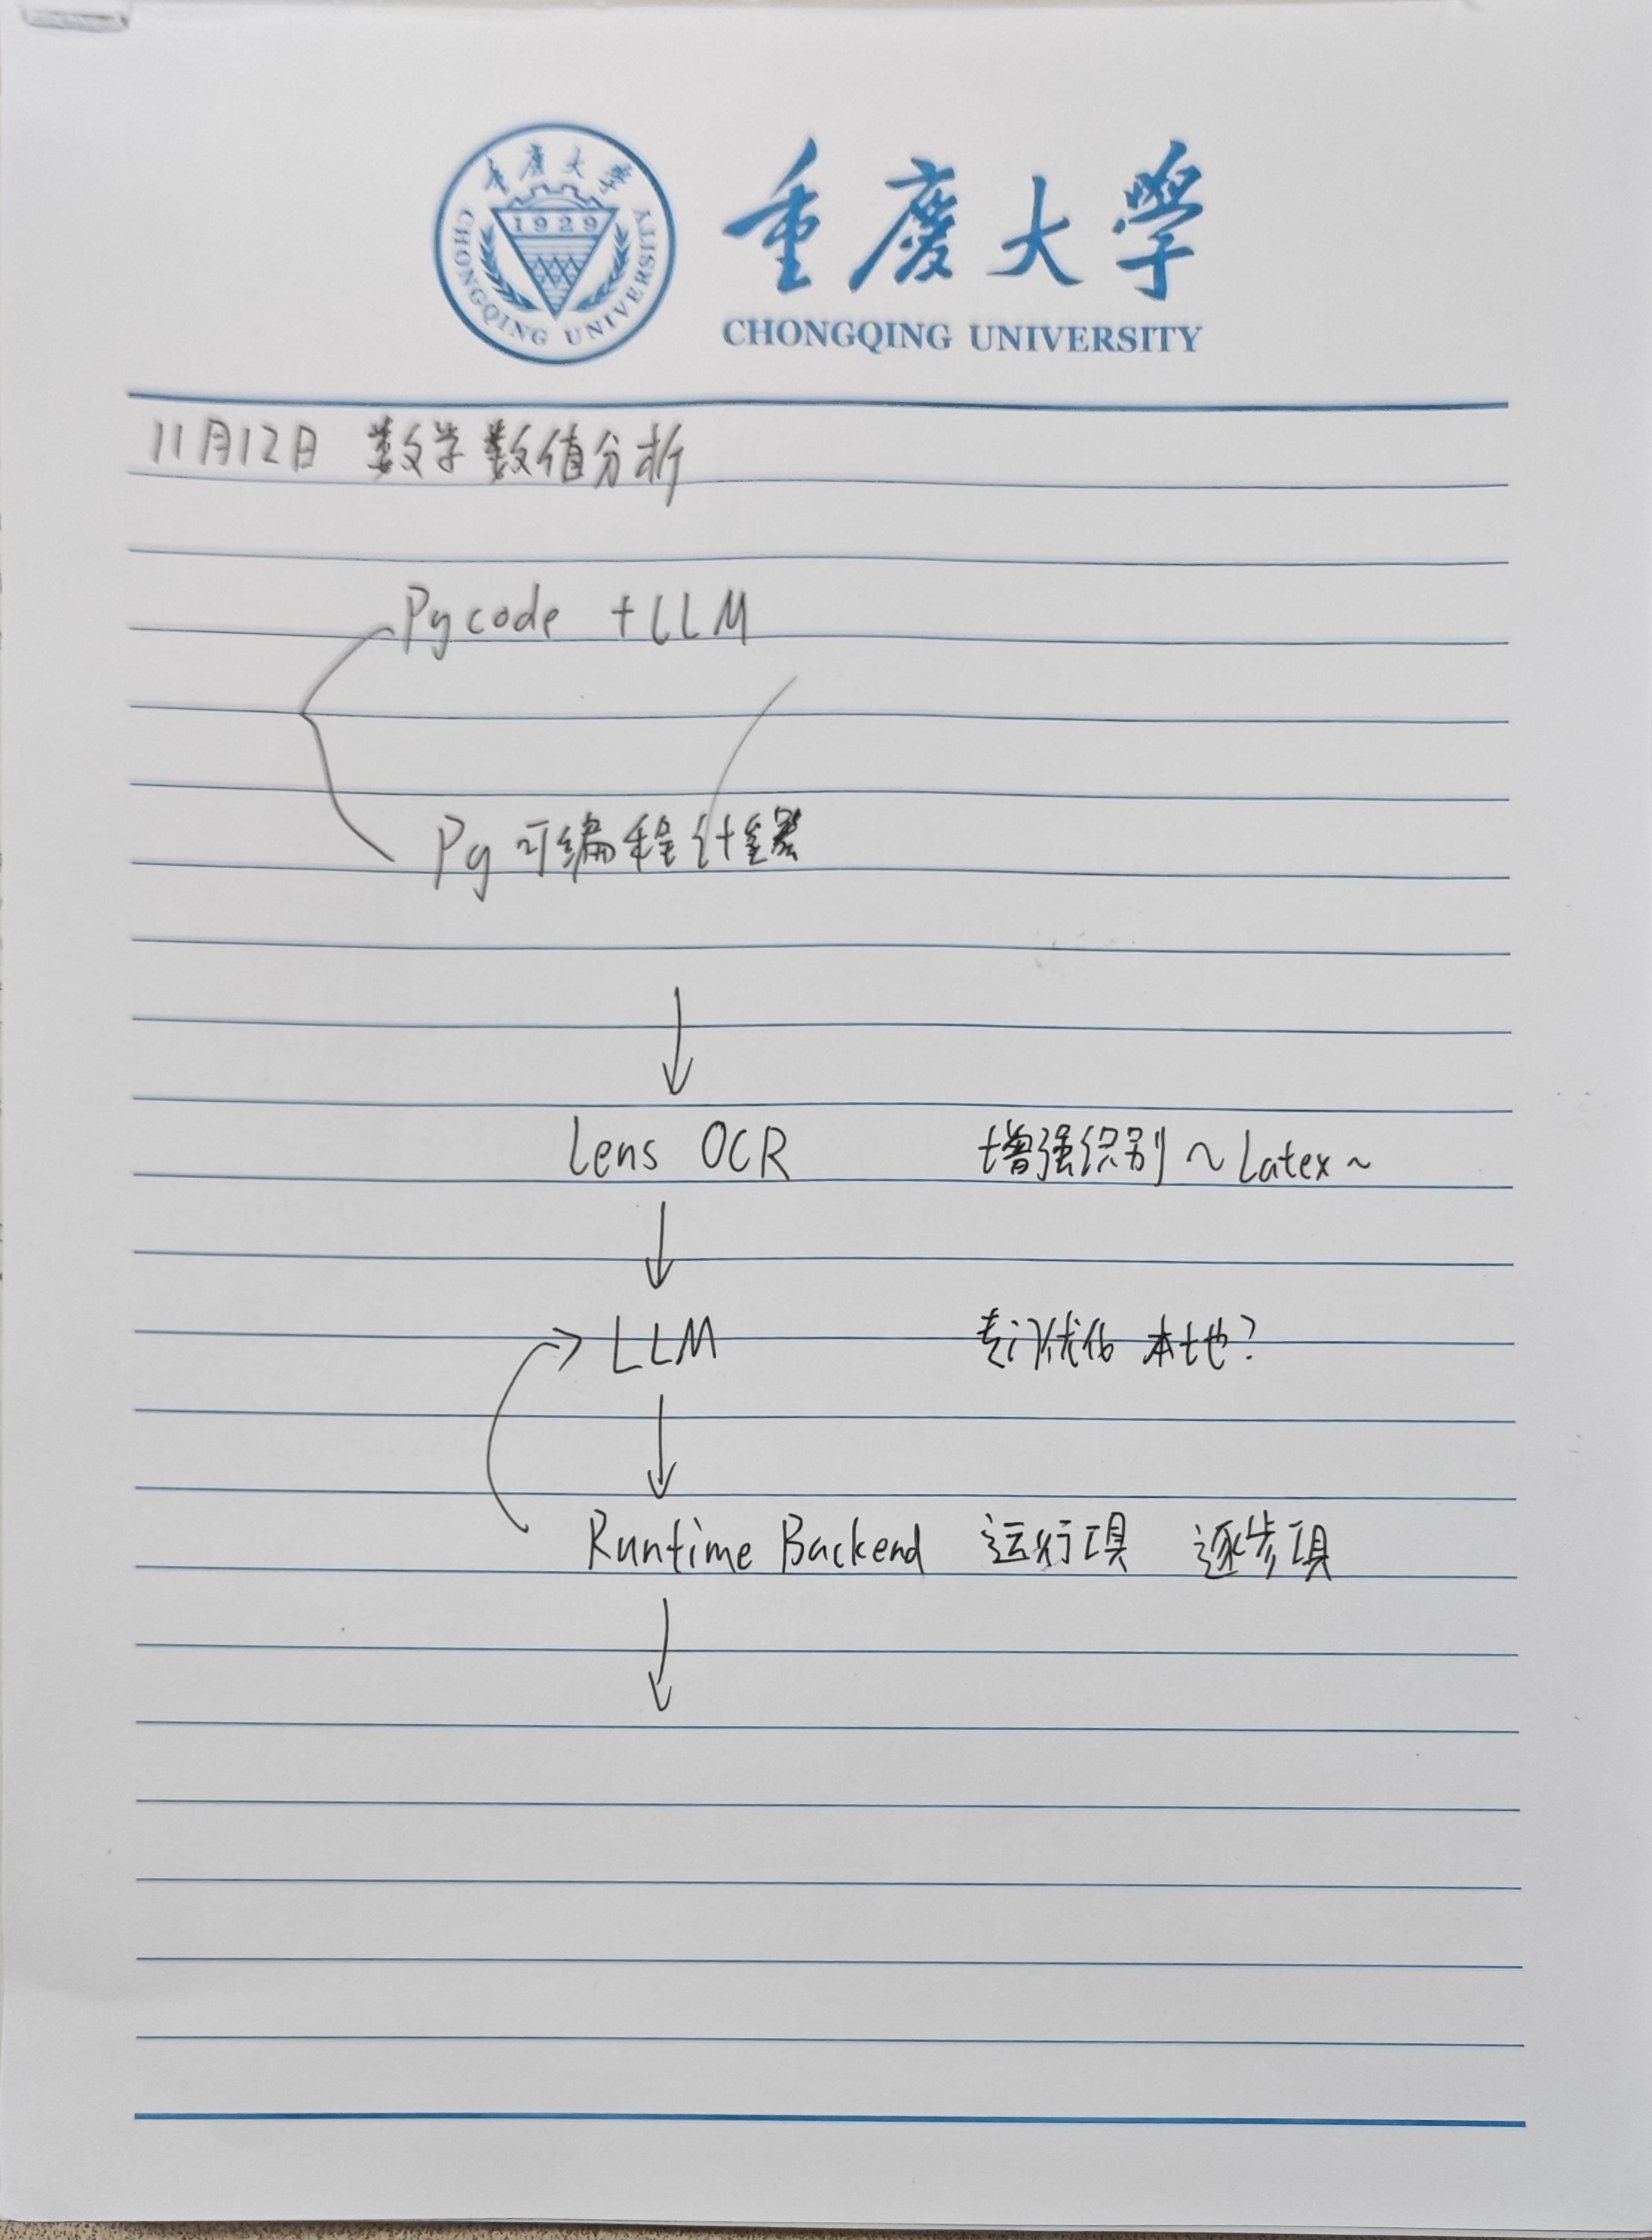 重慶大學
1929
CHONGQING UNIVERSITY
重慶大學
CHONGQING UNIVERSITY
11月12日 数学数值分析
Pycode +LLM
Py 可编程计算器
Lens OCR 增强识别 ~Latex~
LLM 专门优化 本地?
Runtime Backend 运行项 逐步项